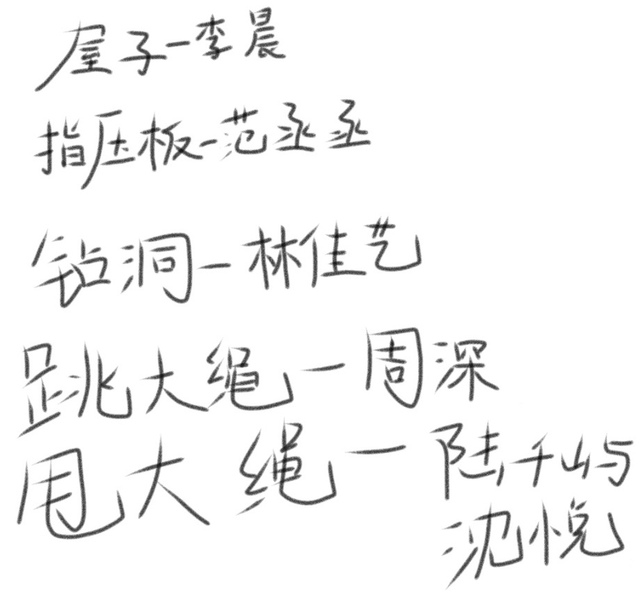 屋子-李晨
指压板-范丞丞
钻洞-林佳艺
跳大绳-周深
甩大绳-陆千屿
沈悦